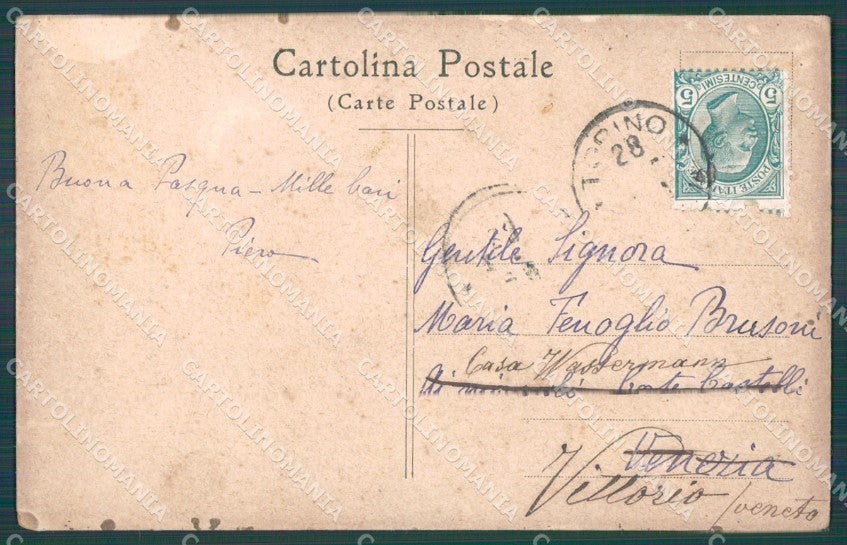 Cartolina Postale
(Carte Postale)
5 CENTESIMI 5
POSTE ITAL
TORINO
28
Buona Pasqua - Mille baci
Piero
Gentile Signora
Maria Fenoglio Brusoni
Casa Wassermann
Venezia
Vittorio /veneto
CARTOLINOMANIA